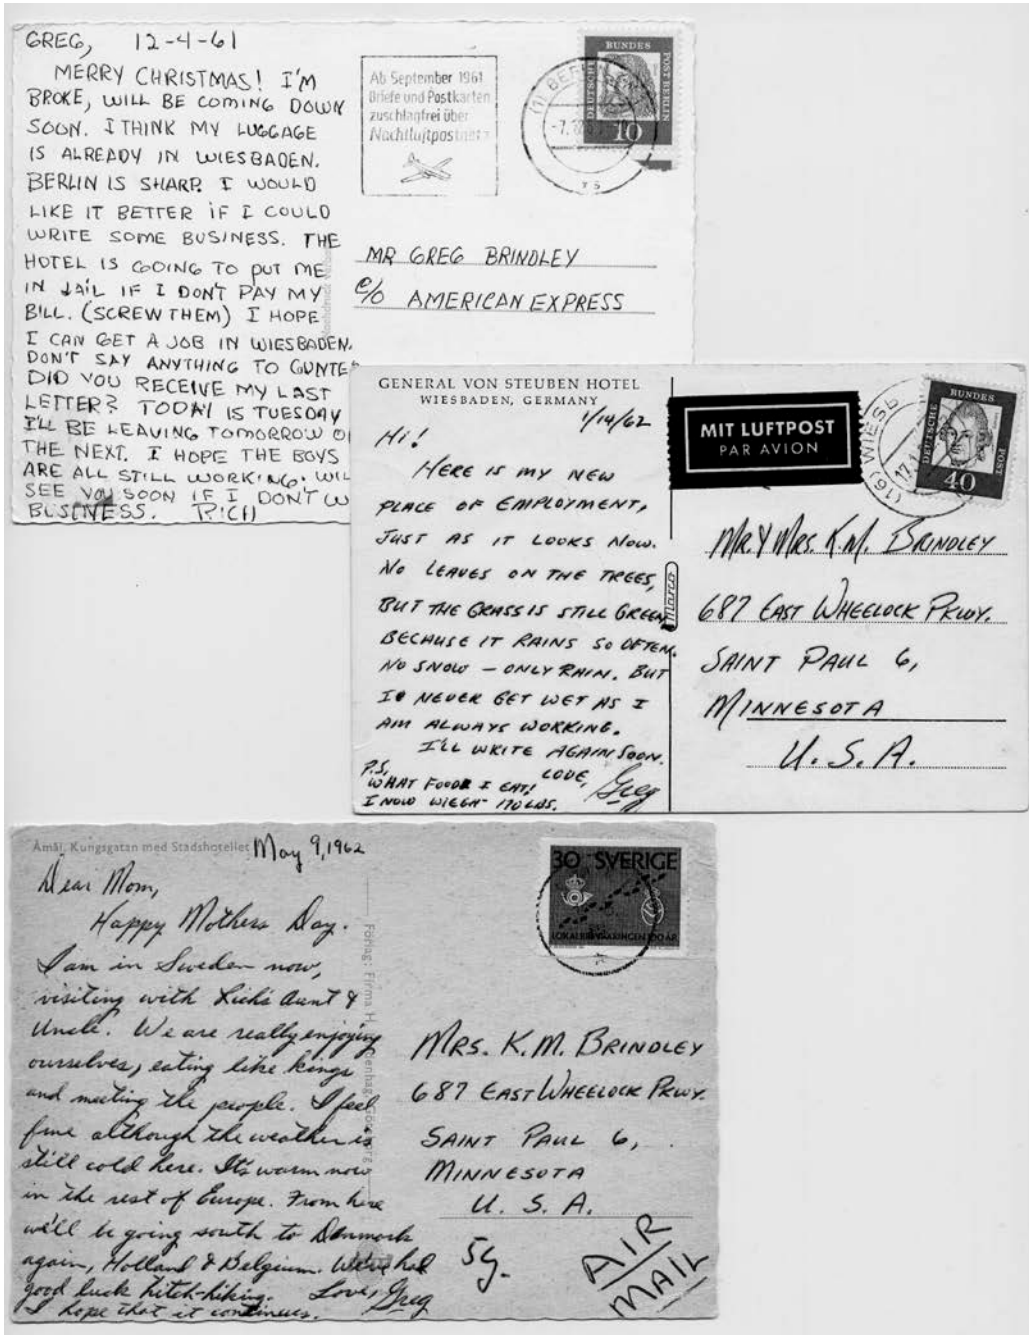 GREG, 12-4-61
MERRY CHRISTMAS! I'M
BROKE, WILL BE COMING DOWN
SOON. I THINK MY LUGGAGE
IS ALREADY IN WIESBADEN.
BERLIN IS SHARP. I WOULD
LIKE IT BETTER IF I COULD
WRITE SOME BUSINESS. THE
HOTEL IS GOING TO PUT ME
IN JAIL IF I DON'T PAY MY
BILL. (SCREW THEM) I HOPE
I CAN GET A JOB IN WIESBADEN.
DON'T SAY ANYTHING TO GUNTE
DID YOU RECEIVE MY LAST
LETTER? TODAY IS TUESDAY
I'LL BE LEAVING TOMORROW O
THE NEXT. I HOPE THE BOYS
ARE ALL STILL WORKING. WIL
SEE YOU SOON IF I DON'T W
BUSINESS. RICH
Ab September 1961
Briefe und Postkarten
zuschlagfrei über
Nachtluftpostnetz
DEUTSCHE BUNDES POST BERLIN
10
MR GREG BRINDLEY
C/O AMERICAN EXPRESS
GENERAL VON STEUBEN HOTEL
WIESBADEN, GERMANY
1/14/62
Hi!
HERE IS MY NEW
PLACE OF EMPLOYMENT,
JUST AS IT LOOKS NOW.
NO LEAVES ON THE TREES,
BUT THE GRASS IS STILL GREEN,
BECAUSE IT RAINS SO OFTEN.
NO SNOW – ONLY RAIN. BUT
I NEVER GET WET AS I
AM ALWAYS WORKING.
I'LL WRITE AGAIN SOON.
LOVE,
Greg
P.S.
WHAT FOOD I EAT!
I NOW WIEGH 170 LBS.
marco
MIT LUFTPOST
PAR AVION
(16) WIESB
DEUTSCHE BUNDES POST
40
MR. & MRS. K.M. BRINDLEY
687 EAST WHEELOCK PKWY.
SAINT PAUL 6,
MINNESOTA
U. S. A.
Åmål, Kungsgatan med Stadshotellet
May 9, 1962
Dear Mom,
Happy Mothers Day.
I am in Sweden now,
visiting with Rich's Aunt &
Uncle. We are really enjoying
ourselves, eating like kings
and meeting the people. I feel
fine although the weather is
still cold here. It's warm now
in the rest of Europe. From here
we'll be going south to Denmark
again, Holland & Belgium. We've had
good luck hitch-hiking. Love, Greg
I hope that it continues.
Förlag: Firma H.
30 SVERIGE
MRS. K.M. BRINDLEY
687 EAST WHEELOCK PKWY.
SAINT PAUL 6,
MINNESOTA
U. S. A.
5g.
AIR
MAIL